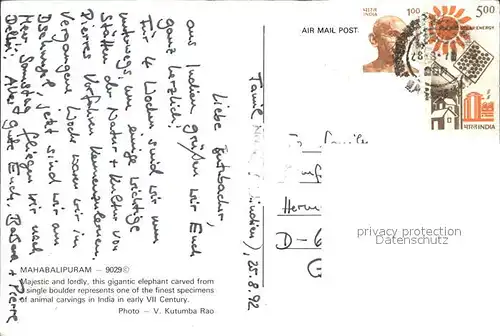 Tamil Nadu (Südindien), 25.8.92
Liebe Butzbacher,
aus Indien grüßen wir Euch
ganz herzlich!
Für 4 Wochen sind wir nun
unterwegs, um einige wichtige
Stätten der Natur + Kultur von
Pierres Vorfahren kennenzulernen.
Vergangene Woche waren wir im
Dschungel, jetzt sind wir am
Meer. Samstag fliegen wir nach
Delhi. Alles Gute Euch, Barbara + Pierre
MAHABALIPURAM — 9029©
Majestic and lordly, this gigantic elephant carved from
single boulder represents one of the finest specimens
of animal carvings in India in early VII Century.
Photo — V. Kutumba Rao
AIR MAIL POST
भारत INDIA 1.00
5.00
SOLAR ENERGY
भारत INDIA
Familie
Herm
D-6
G
privacy protection
Datenschutz